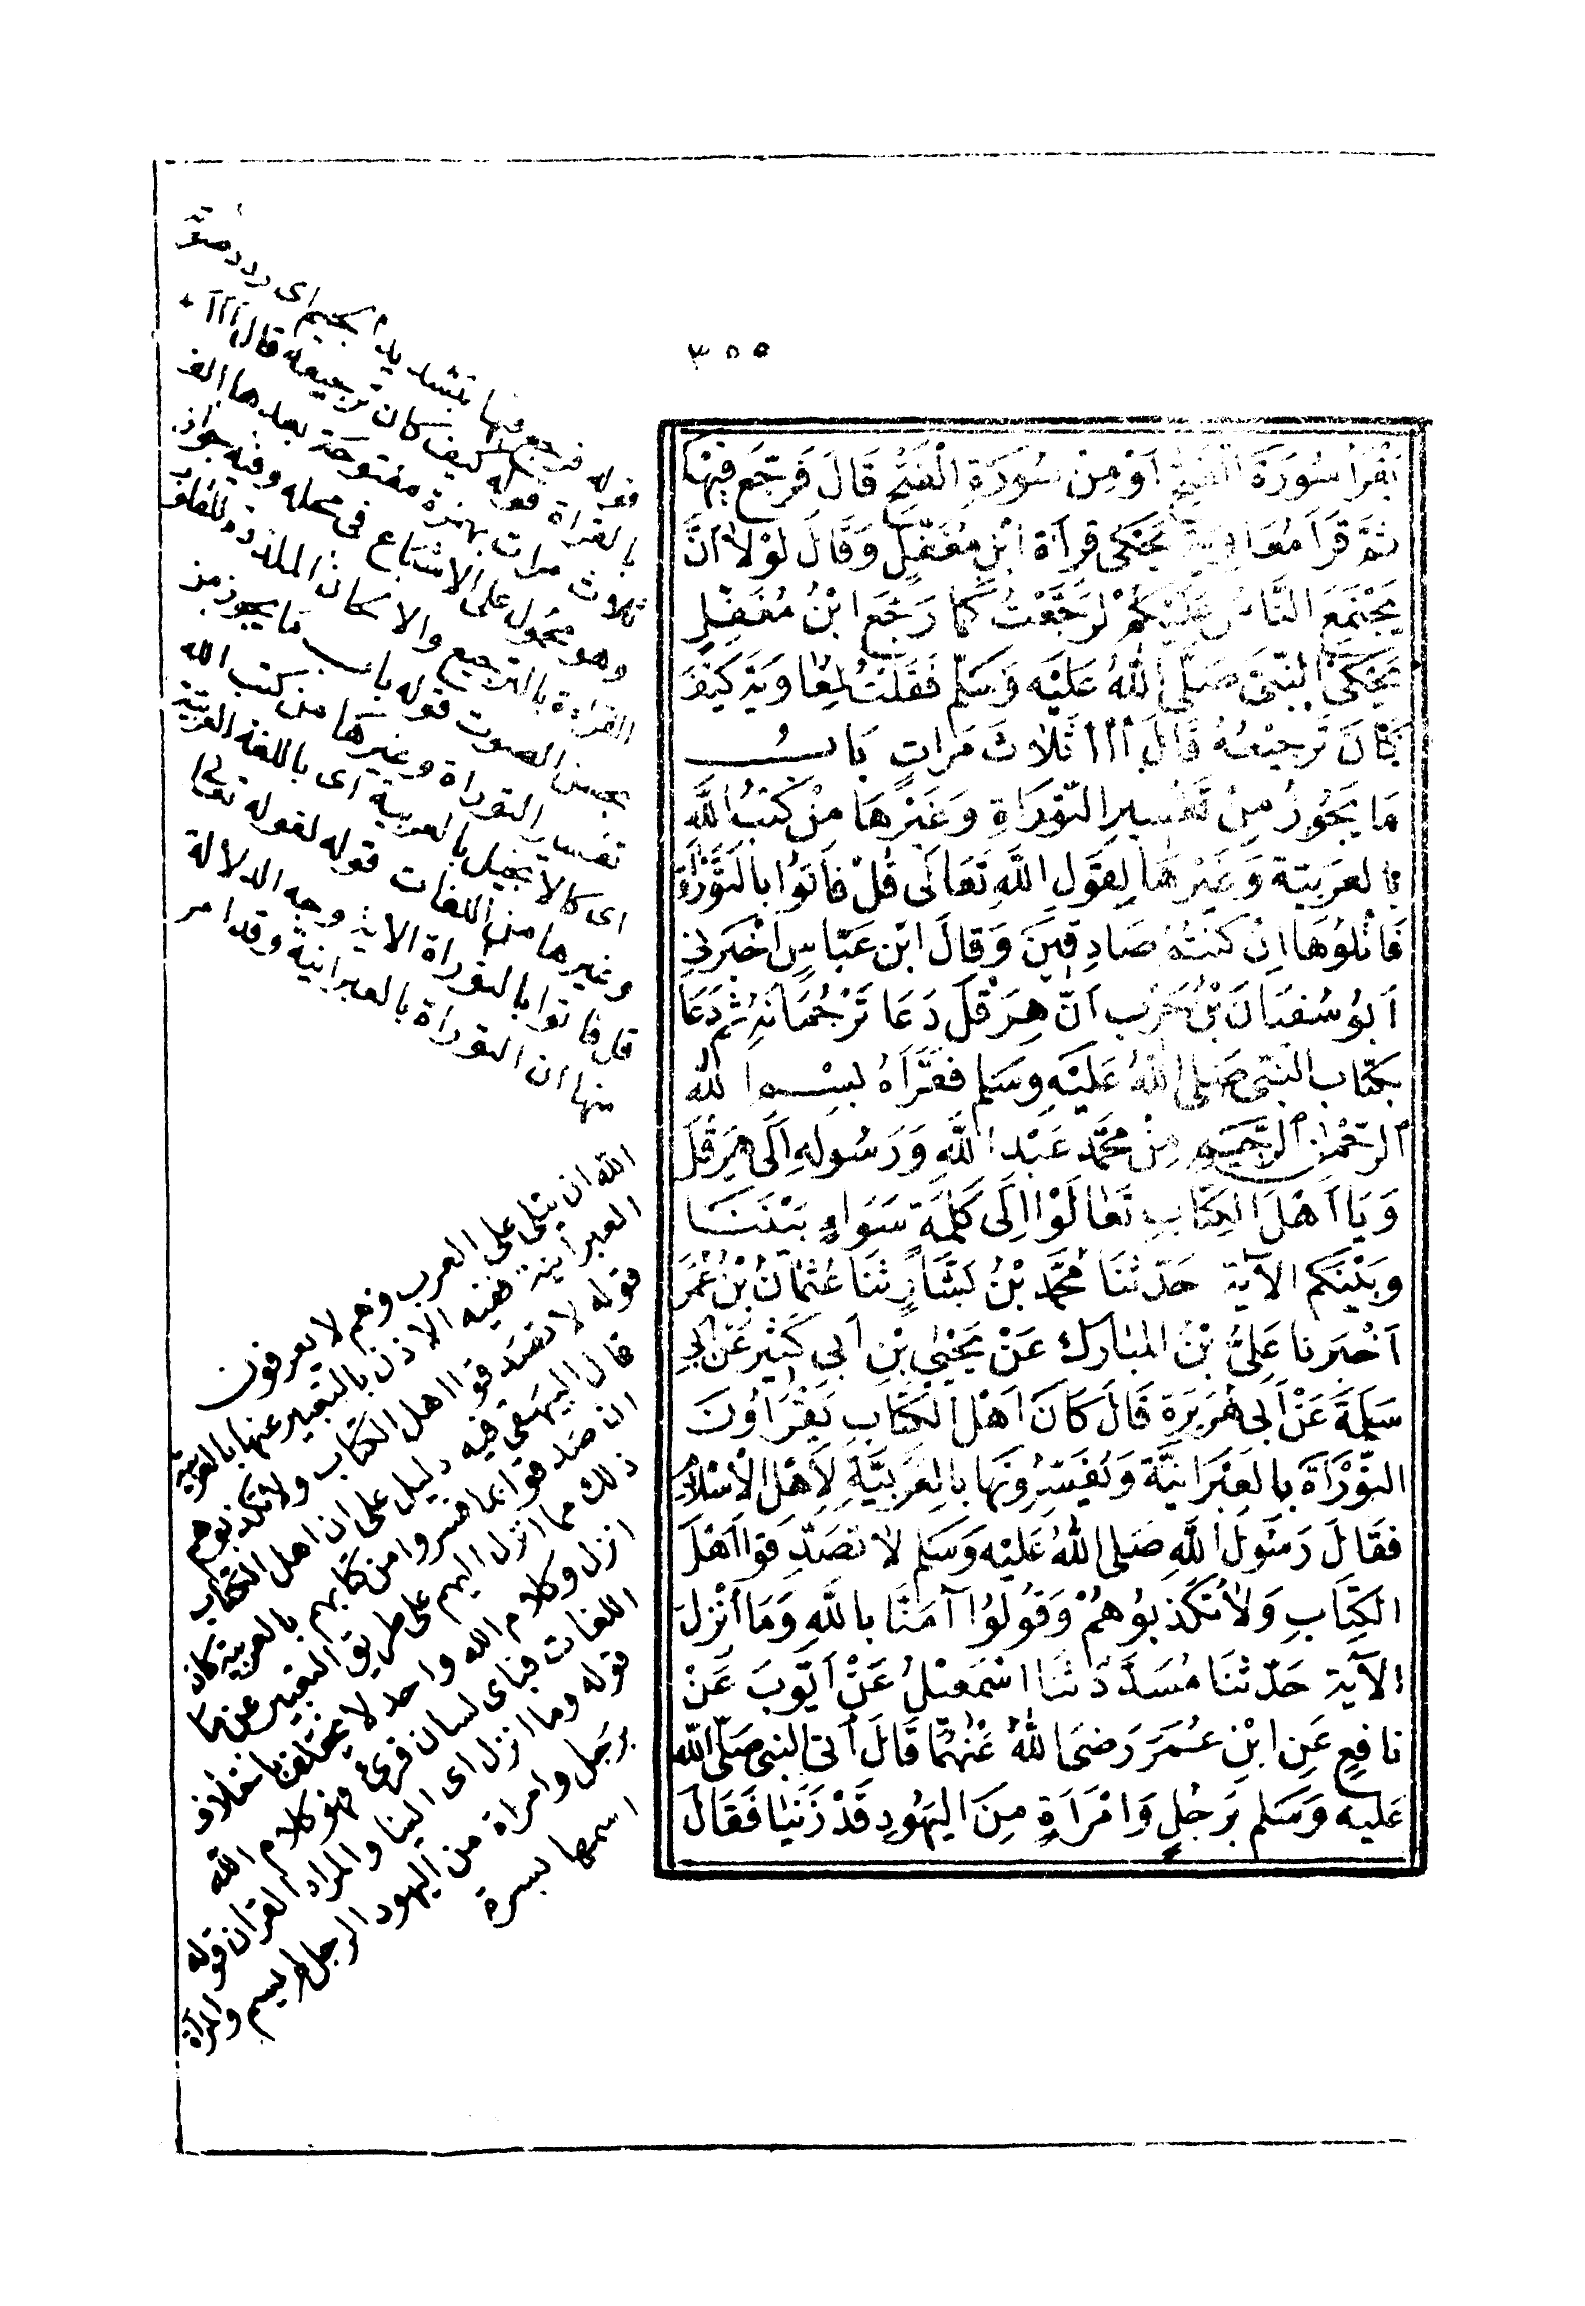 ٣٥٥
يَقْرَأُ سُورَةَ الْفَتْحِ اَوْ مِنْ سُورَةِ الْفَتْحِ قَالَ فَرَجَّعَ فِيْهَا
ثُمَّ قَرَاَ مُعَاوِيَةُ يَحْكِى قِرَاَةَ ابْنِ مُغَفَّلٍ وَقَالَ لَوْلاَ اَنْ
يَجْتَمِعَ النَّاسُ عَلَيْكُمْ لَرَجَّعْتُ كَمَا رَجَّعَ ابْنُ مُغَفَّلٍ
يَحْكِى النَّبِىَّ صَلَّى اللهُ عَلَيْهِ وَسَلَّم فَقُلْتُ لِمُعَاوِيَةَ كَيْفَ
كَانَ تَرْجِيْعُهُ قَالَ أَأَأَ ثَلاَثَ مَرَاتٍ بَابُ
مَا يَجُوزُ مِنْ تَفْسِيرِ التَّوْرَاةِ وَغَيْرِهَا مِنْ كُتُبِ اللَّهِ
بِالعَرَبِيَّة وَغَيْرِهَا لِقَوْلِ اللَّهِ تَعَالَى قُلْ فَأتَوُا بِالتَّوْرَاةِ
فَاتْلُوهَا اِنْ كُنْتُمْ صَادِقِينَ وَقَالَ ابْن عَبَّاسٍ اَخْبَرَنِى
اَبُو سُفْيَانَ بْنُ حَرْب اَنَّ هِرَقْلَ دَعَا تَرْجُمَانَهُ ثُمَّ دَعَا
بِكِتَابِ النَّبِىِّ صَلى اللهُ عَلَيْهِ وَسَلم فَقَرَأهُ بِسْمِ اللهِ
الرَّحْمٰنِ الرَّحِيمِ مِنْ مُحَمَّد عَبْدِ اللَّهِ وَرَسُولِهِ اِلَى هِرَقْلَ
وَيَا اَهْلَ الْكِتَابِ تَعَالَوْا اِلَى كَلِمَةٍ سَوَاءٍ بَيْنَنَا
وبَيْنَكم الآيَة حَدّثنَا مُحَمَّد بْنُ بَشَّارٍ ثنَا عُثْمَانُ بْنُ عُمَرَ
اَخْبَرنا عَلِىُّ بْنُ المُبَارَكِ عَنْ يَحْيٰى بْنِ اَبِى كَثِيْرٍ عَنْ اَبِى
سَلَمَةَ عَنْ اَبِى هُرَيرَة قَالَ كَانَ اَهْلُ الكِتَابِ يَقْرَاوُنَ
التَّوْرَاةَ بِالعِبْرَانِيَّة وَيُفَسِّرُونَهَا بِالعَرَبِيَّةِ لِاَهْلِ الْاِسْلاَمِ
فَقَالَ رَسُولُ اللَّهِ صَلى اللهُ عَلَيْه وَسَلم لاَ تُصَدِّقوُا اَهْلَ
الكِتَابِ وَلاَ تُكَذِّبوُهُمْ وَقُولُوْا آمَنَّا بِاللَّهِ وَمَا اُنْزِلَ
الآيَة حَدّثنَا مُسَدَّدٌ ثنَا اسْمَعِيْلُ عَنْ اَيُّوبَ عَنْ
نَافِعٍ عَنِ ابْنِ عُمَرَ رَضِىَ اللهُ عَنْهُمَا قَالَ أُتِىَ النَّبِى صَلّى اللّه
عَليه وَسَلم بِرَجُلٍ وَامْرَاَةٍ مِنَ اليَهُودِ قَدْ زَنَيَا فَقَالَ
قوله فرجع فيها بتشديد الجيم اى ردد صوته
بالقراة قوله كيف كان ترجيعه قال آآآ
ثلاث مرات بهمزة مفتوحة بعدها الف
وهو محمول على الاشباع فى محله وفيه جواز
القراءة بالترجيع والالحان الملذذة للقلوب
بحسن الصوت قوله باب ما يجوز من
تفسير التوراة وغيرها من كتب الله
اى كالانجيل بالعربية اى باللغة العربية
وغيرها من اللغات قوله لقوله تعالى
قل فاتوا بالتوراة الاية وجه الدلالة
منها ان التوراة بالعبرانية وقد امر
الله ان يتلى على العرب وهم لا يعرفون
العبرانية ففيه الاذن بالتعبير عنها بالعربية
قوله لا تصدقوا اهل الكتاب ولا تكذبوهم
قال البيهقى فيه دليل على ان اهل الكتاب
ان صدقوا بما فسروا من كتابهم بالعربية كان
ذلك مما انزل اليهم على طريق التعبير عن ما
انزل وكلام الله واحد لا يختلف باختلاف
اللغات فباى لسان قرئ فهو كلام الله
قوله وما انزل اى الينا والمراد القران قوله
برجل وامراة من اليهود الرجل لم يسم والمراة
اسمها بسرة